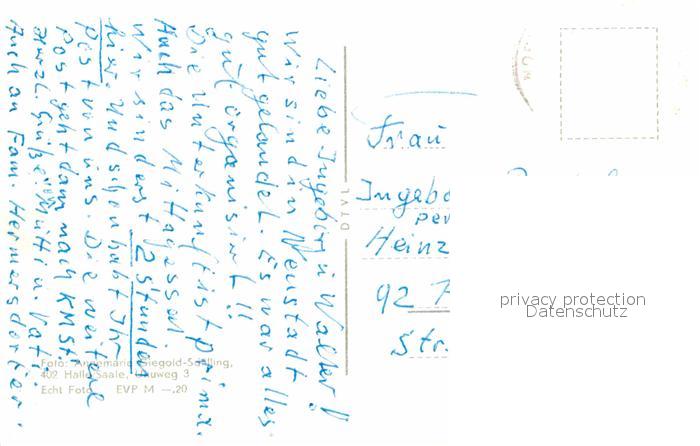 Liebe Ingeborg u Walter!
Wir sind in Neustadt
gut gelandet. Es war alles
gut organisirt!!
Die Unterkunft ist prima.
Auch das Mittagessen.
Wir sind erst 2 Stunden
hier. Und schon habt Ihr
Post von uns. Die weitere
Post geht dann nach KMSt.
Herzl. Grüße: Mutti u. Vati.
Auch an Fam. Hermersdörfer.
Frau
Ingebo
per
Heinz
92
Str.
privacy protection
Datenschutz
Foto: Annemarie Giegold-Schilling,
402 Halle/Saale, Uhuweg 3
Echt Foto EVP M —.20